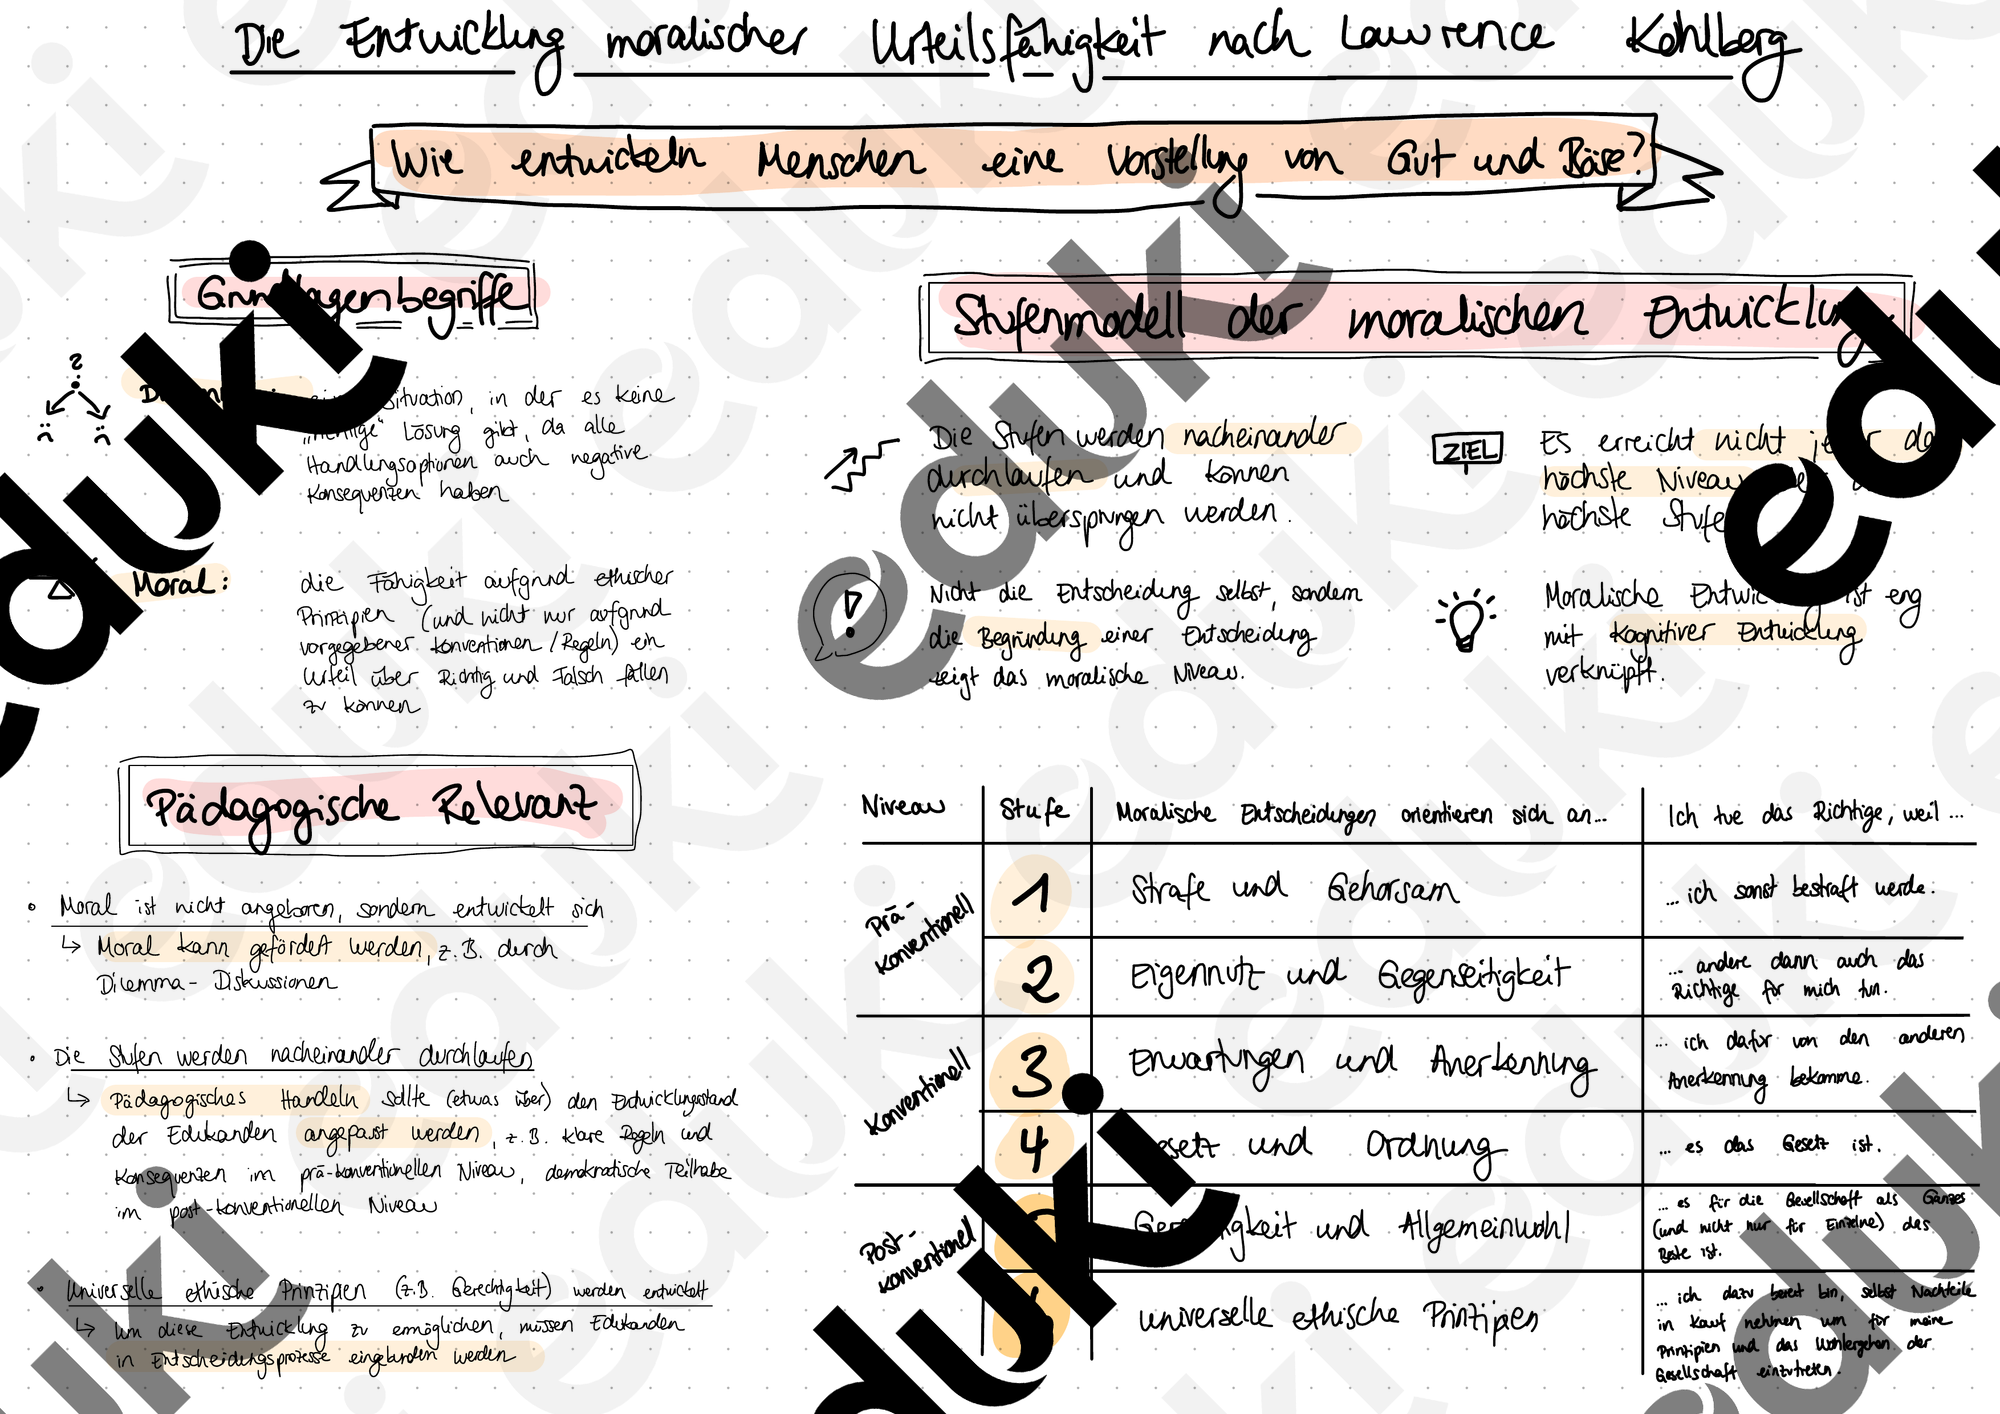 Die Entwicklung moralischer Urteilsfähigkeit nach Lawrence Kohlberg
Wie entwickeln Menschen eine Vorstellung von Gut und Böse?
Grundlagenbegriffe
?
Situation, in der es keine
"richtige" Lösung gibt, da alle
Handlungsoptionen auch negative
Konsequenzen haben
Moral:
die Fähigkeit aufgrund ethischer
Prinzipien (und nicht nur aufgrund
vorgegebener Konventionen / Regeln) ein
Urteil über Richtig und Falsch fällen
zu können
Pädagogische Relevanz
• Moral ist nicht angeboren, sondern entwickelt sich
↳ Moral kann gefördert werden, z.B. durch
Dilemma- Diskussionen
• Die Stufen werden nacheinander durchlaufen
↳ Pädagogisches Handeln sollte (etwas über) den Entwicklungsstand
der Edukanden angepasst werden, z.B. klare Regeln und
Konsequenzen im prä-konventionellen Niveau, demokratische Teilhabe
im post-konventionellen Niveau
• Universelle ethische Prinzipien (z.B. Gerechtigkeit) werden entwickelt
↳ Um diese Entwicklung zu ermöglichen, müssen Edukanden
in Entscheidungsprozesse eingebunden werden
Stufenmodell der moralischen Entwicklung
Die Stufen werden nacheinander
durchlaufen und können
nicht übersprungen werden.
ZIEL
Es erreicht nicht jeder
höchste Niveau
höchste Stufe
!
Nicht die Entscheidung selbst, sondern
die Begründung einer Entscheidung
zeigt das moralische Niveau.
Moralische Entwicklung ist eng
mit kognitiver Entwicklung
verknüpft.
Niveau Stufe Moralische Entscheidungen orientieren sich an... Ich tue das Richtige, weil ...
Prä-
konventionell
1 Strafe und Gehorsam ... ich sonst bestraft werde.
2 Eigennutz und Gegenseitigkeit ... andere dann auch das
Richtige für mich tun.
Konventionell
3 Erwartungen und Anerkennung ... ich dafür von den anderen
Anerkennung bekomme.
4 Gesetz und Ordnung ... es das Gesetz ist.
Post-
konventionell
Gerechtigkeit und Allgemeinwohl ... es für die Gesellschaft als Ganzes
(und nicht nur für Einzelne) das
Beste ist.
universelle ethische Prinzipien ... ich dazu bereit bin, selbst Nachteile
in Kauf nehmen um für meine
Prinzipien und das Wohlergehen der
Gesellschaft einzutreten.
eduki
eduki
eduki
eduki
eduki
eduki